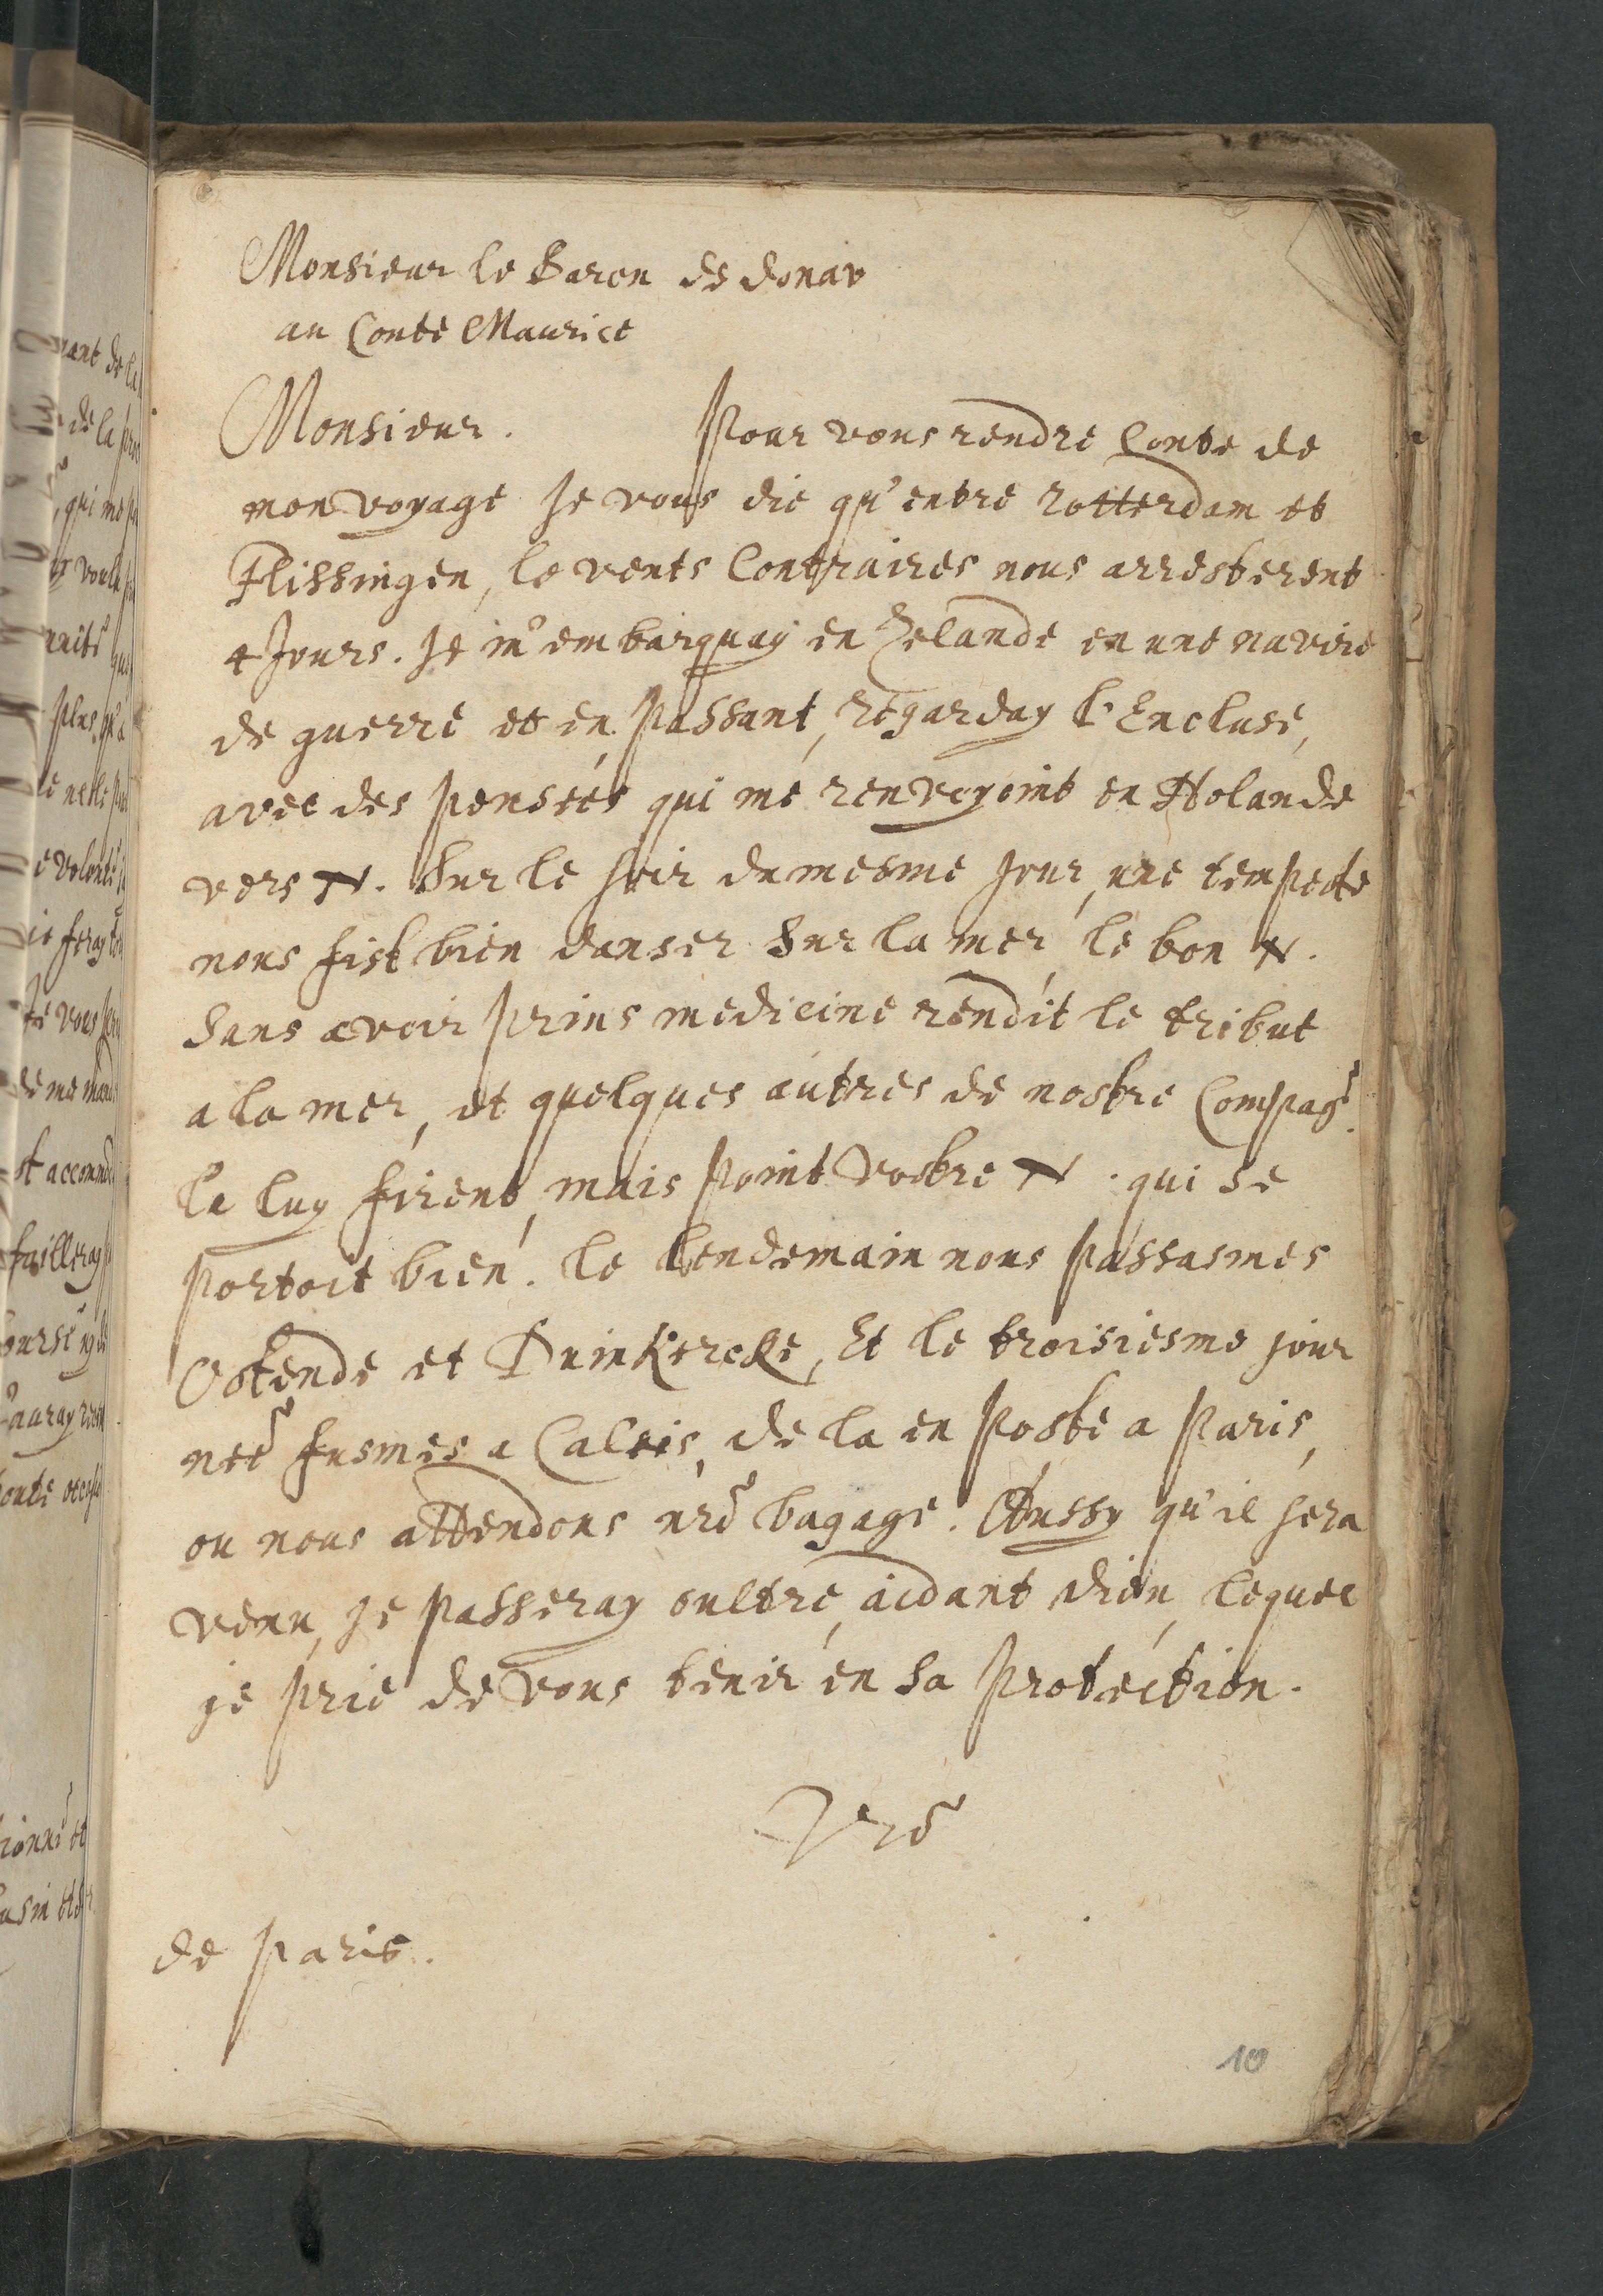 Monsieur le Baron de donav
au Conte Maurice
Monsieur. Pour vous rendre Conte de
mon voyage Je vous die qu'entre rotterdam et
Flissingen, le vents Contraires nous arresterent
4 Jours. Je m'embarquay en Zelande en une navire
de guerre et en passant, regarday l'Encluse,
avec des pensées qui me renvoyoint en Holande
vers N. Sur le soir du mesme Jour, une tempeste
nous fist bien danser Sur la mer, le bon N.
Sans avoir prins medicine rendit le tribut
a la mer, et quelques autres de nostre Compagẽ
le luy firent, mais point vostre N. qui se
portoit bien. le lendemain nous passasmes
Ostende et Duinkercke, Et le troisiesme jour
fusmes a Caleis, de la en poste a Paris,
ou nous attendons nrẽ bagage. Aussy qu'il sera
venu, Je passeray oultre, aidant dieu, lequel
je prie de vous tenir en sa protection.
Vrẽ
de Paris.
10